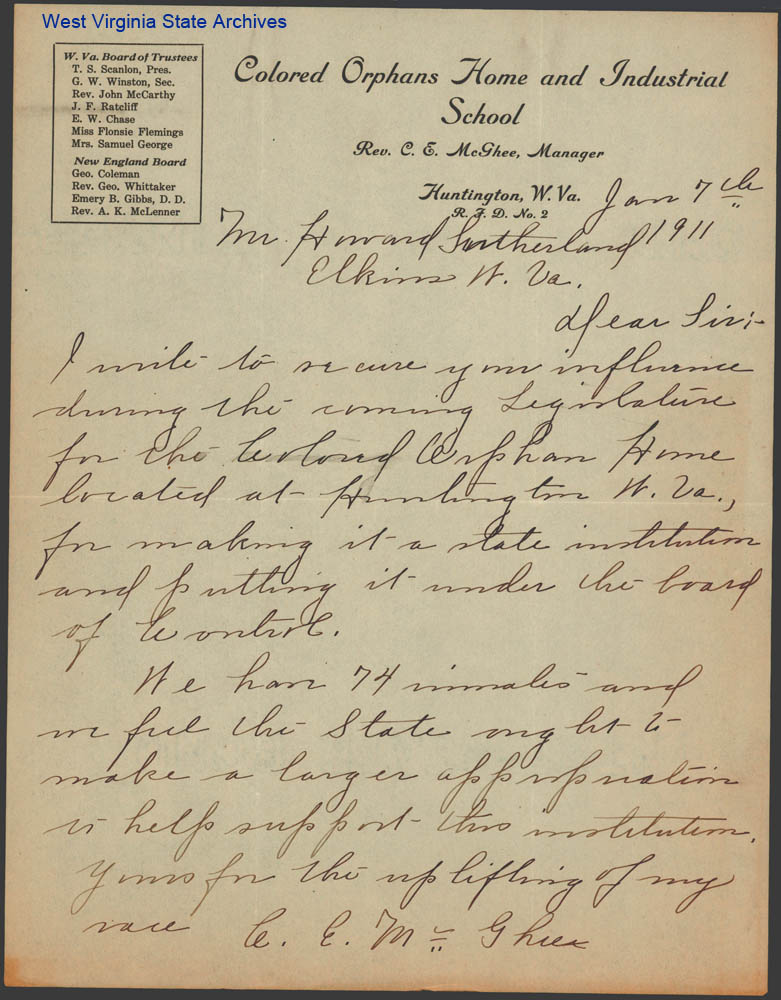 West Virginia State Archives
W. Va. Board of Trustees
T. S. Scanlon, Pres.
G. W. Winston, Sec.
Rev. John McCarthy
J. F. Ratcliff
E. W. Chase
Miss Flonsie Flemings
Mrs. Samuel George
New England Board
Geo. Coleman
Rev. Geo. Whittaker
Emery B. Gibbs, D. D.
Rev. A. K. McLenner
Colored Orphans Home and Industrial
School
Rev. C. E. McGhee, Manager
Huntington, W. Va. Jan 7th
R. F. D. No. 2
Mr. Howard Sutherland 1911
Elkins W. Va.
Dear Sir:-
I write to secure your influence
during the coming Legislature
for the Colored Orphan Home
located at Huntington W. Va.,
for making it a state institution
and putting it under the board
of Control.
We have 74 inmates and
we feel the State ought to
make a larger appropriation
to help support this institution.
Yours for the uplifting of my
race C. E. McGhee